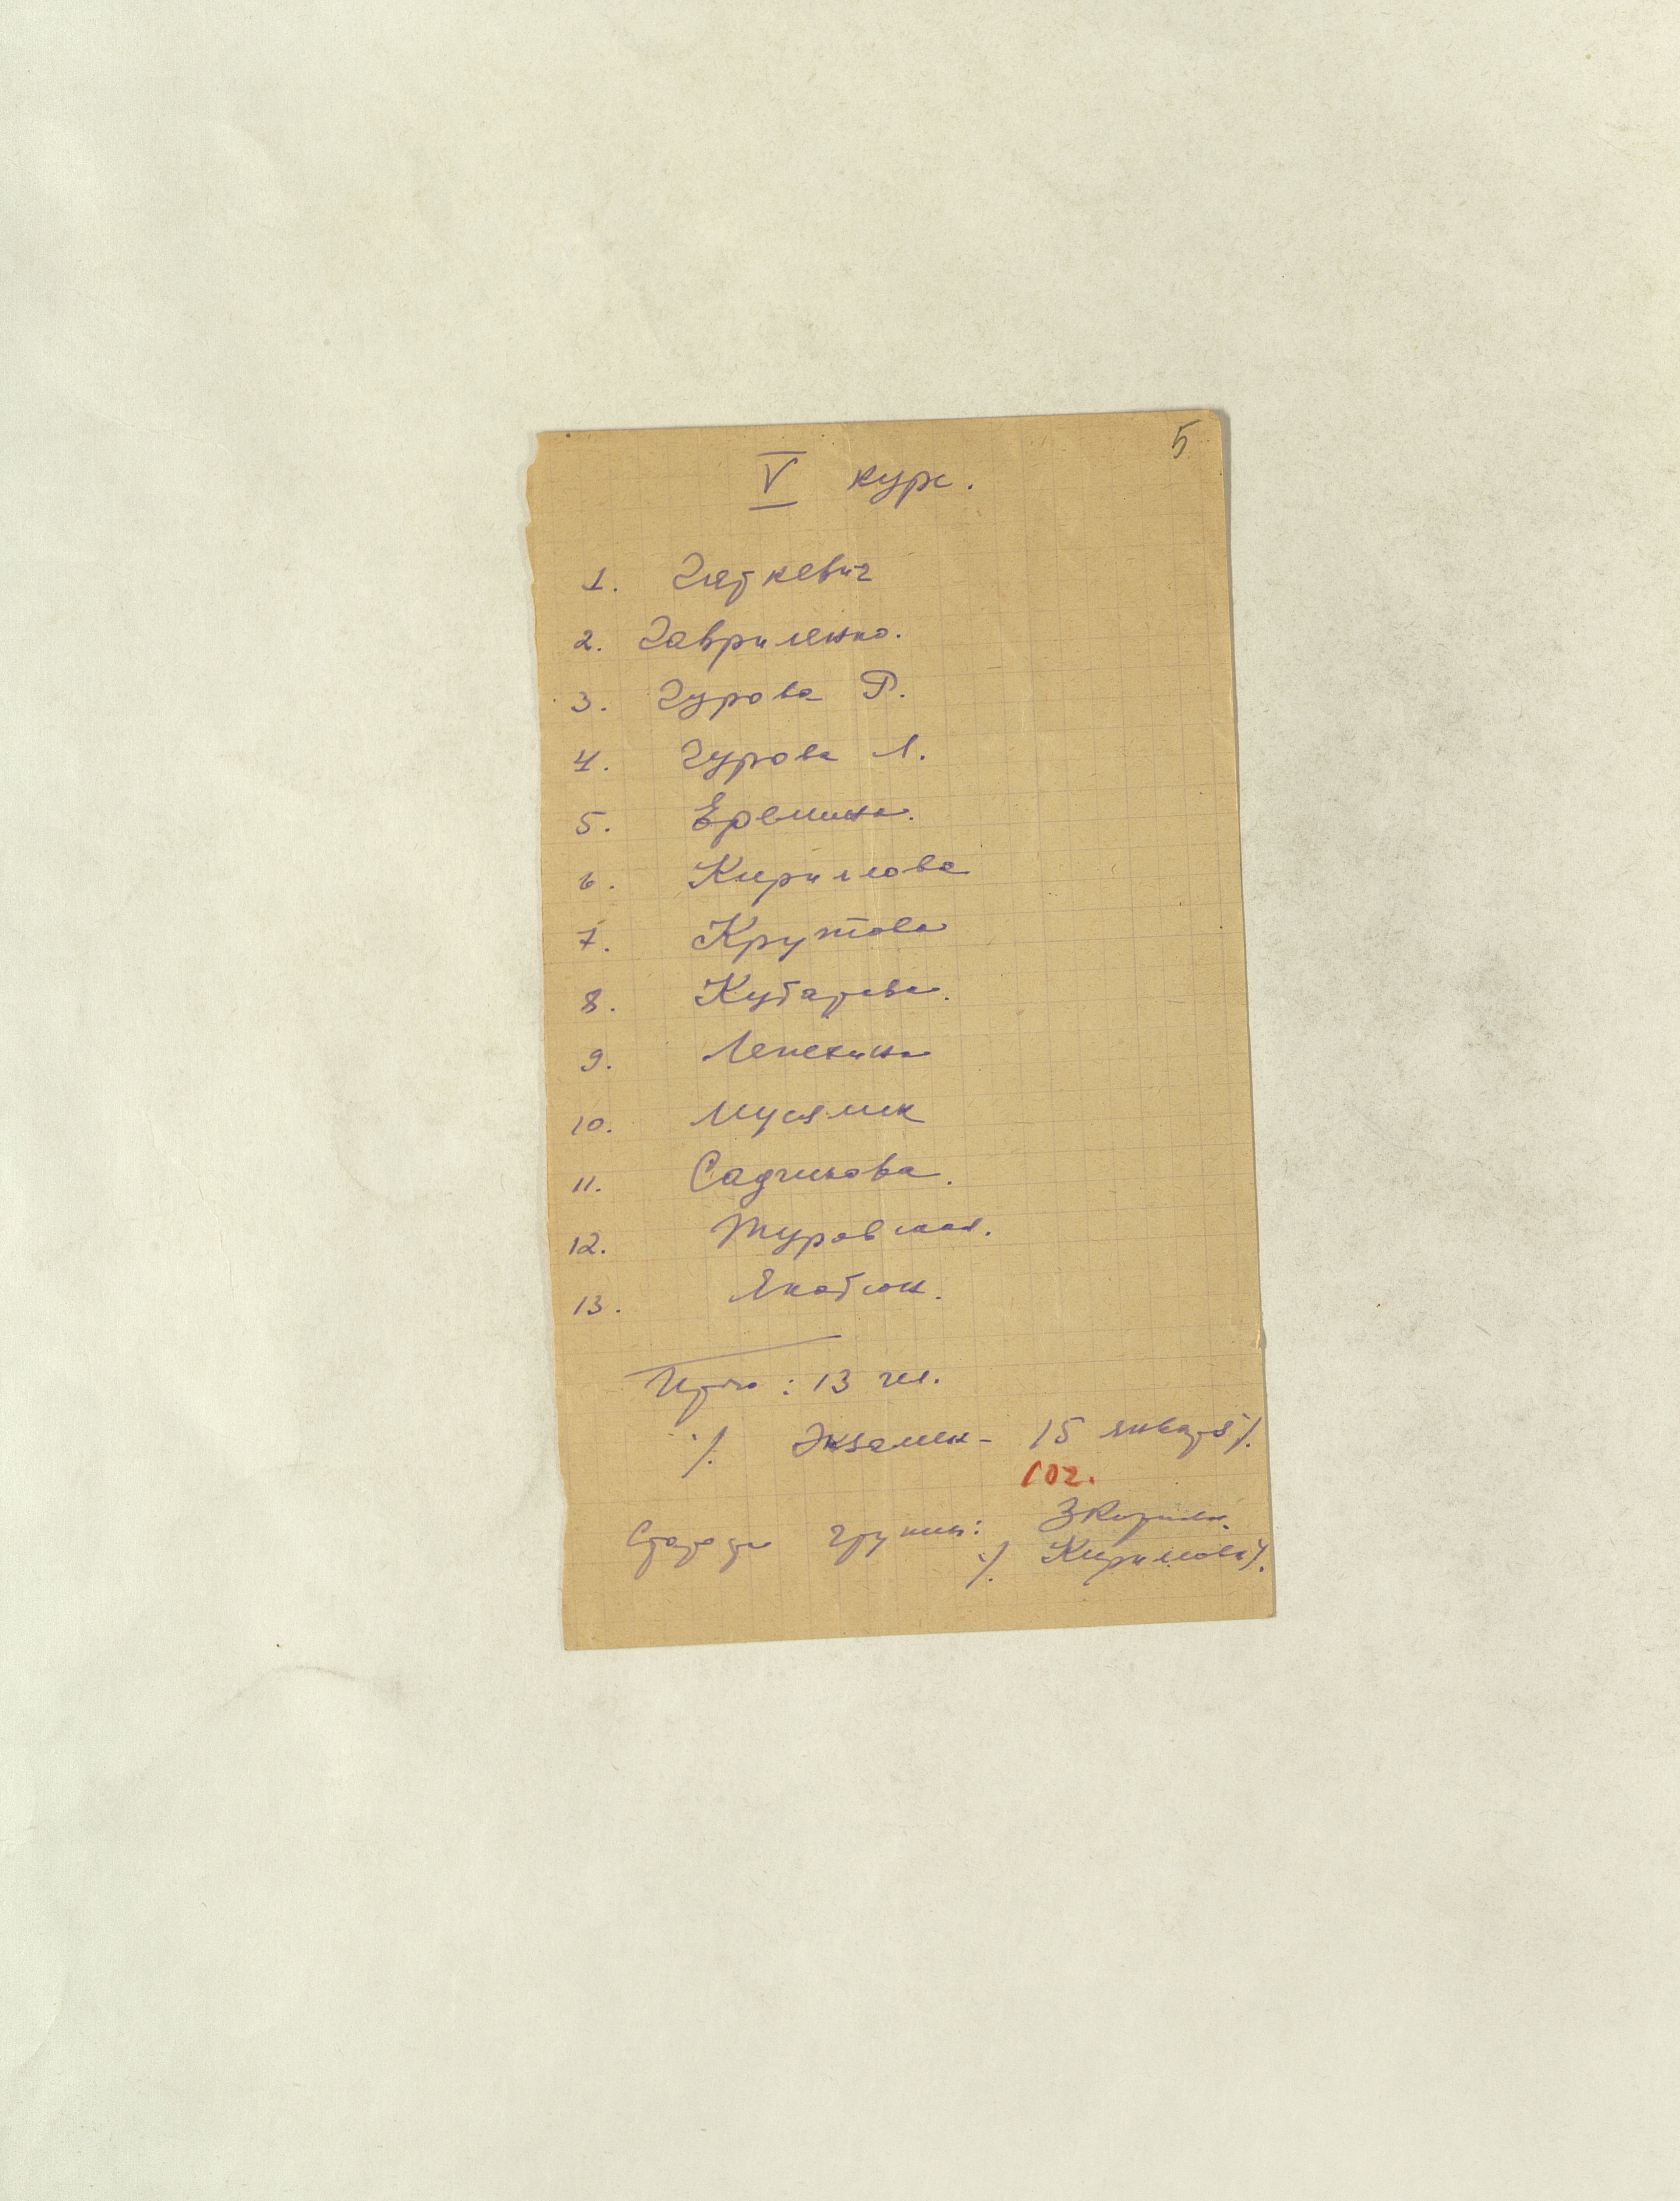 5
V курс.
1. Гляткевич
2. Гавриленко.
3. Гурова Р.
4. Гурова Л.
5. Еремина.
6. Кириллова
7. Крутова
8. Кубарева.
9. Лепехина
10. Мусялик
11. Садчикова.
12. Туровская.
13. Якобсон.
Итого: 13 чел.
·/. Экзамен - 15 января ·/.
10 ч.
Староста группы:
·/. Кириллова ·/.